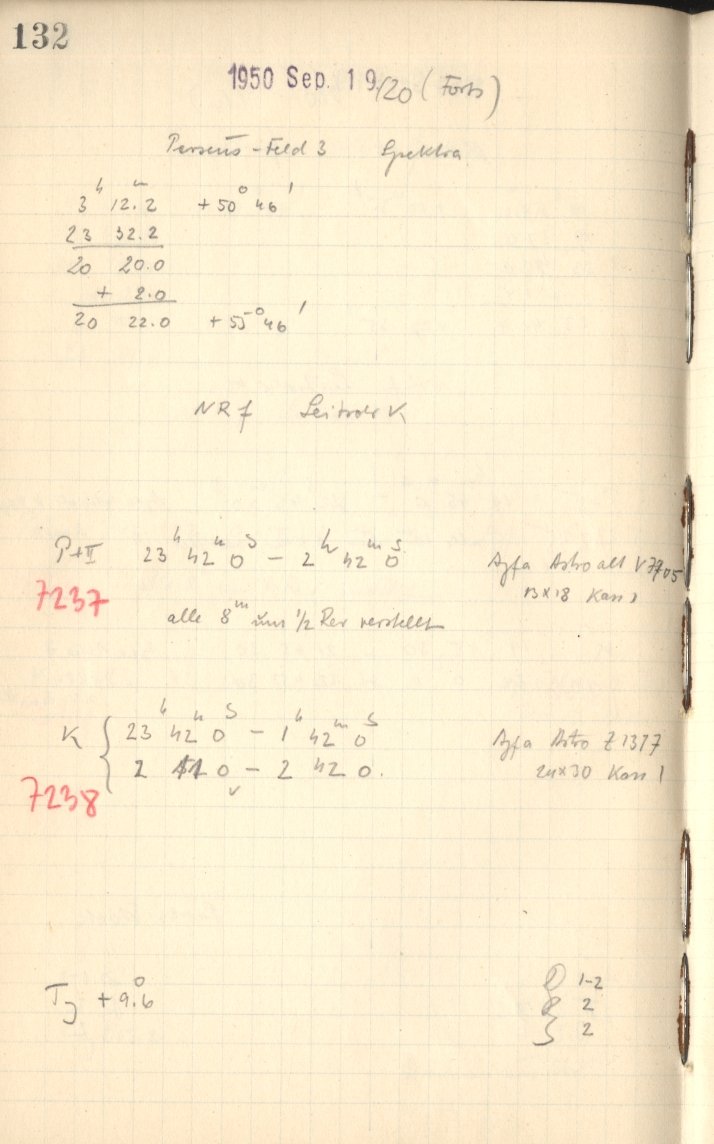 132
1950 Sep. 19/20 (Forts)
Perseus-Feld 3 Spektra
3h 12.2m +50° 46'
23 32.2
20 20.0
+ 2.0
20 22.0 +55° 46'
NRf Leitrohr K
P+II 23h 42m 0s – 2h 42m 0s Agfa Astro alt
7237 13x18 Kass
alle 8m um 1/2 Rev verstellt
K { 23h 42m 0s – 1h 42m 0s Agfa Astro Z 1317
2 0 – 2 42 0. 24x30 Kass 1
7238
+9.6°
1-2
2
2